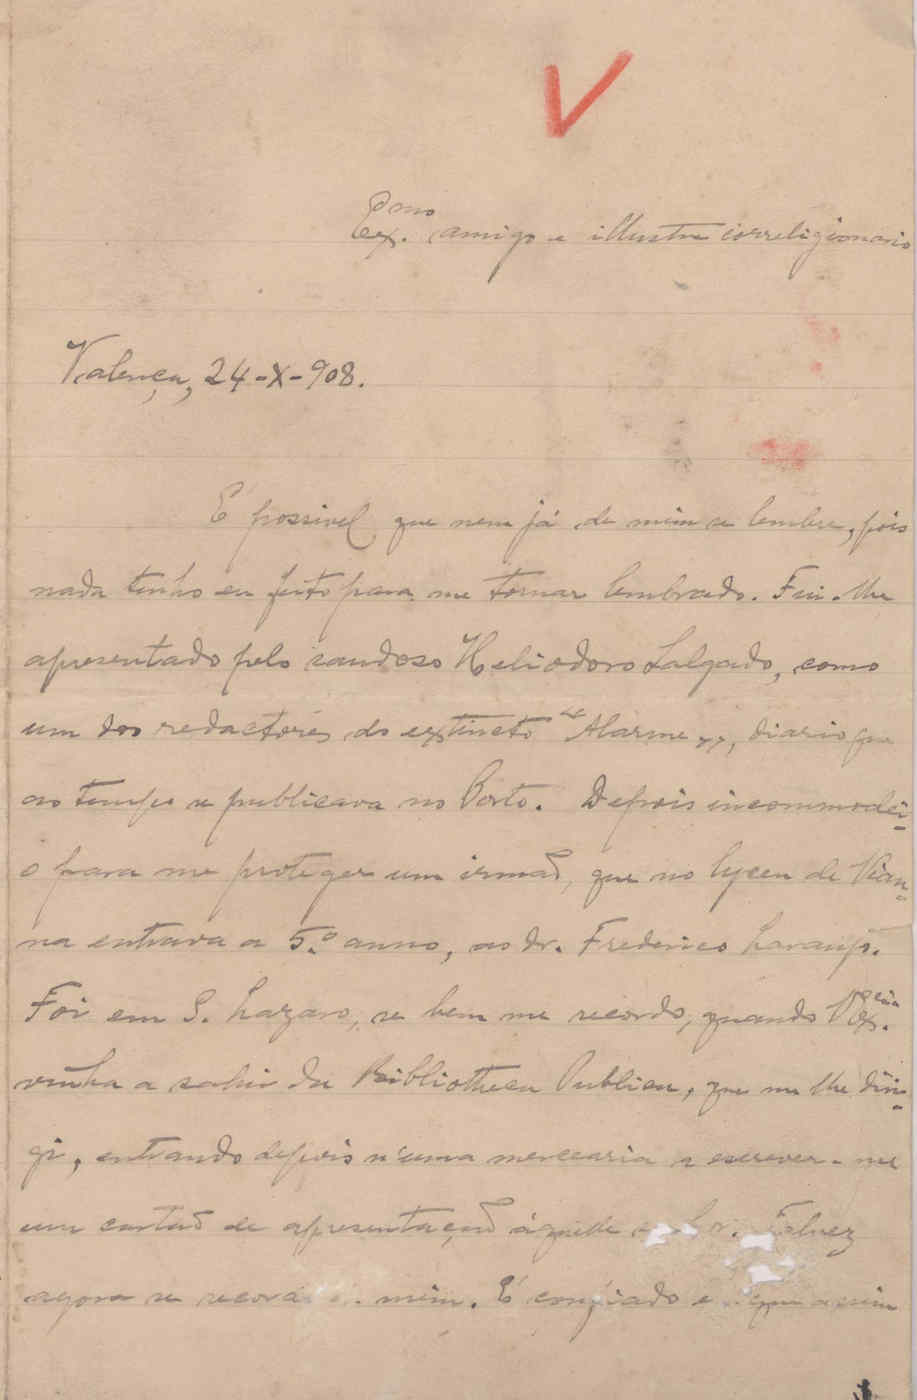 V
Ex.mo amigo e illustre correligionario
Valença, 24-X-908.
É possivel que nem já de mim se lembre, pois
nada tenho eu feito para me tornar lembrado. Fui-lhe
apresentado pelo saudoso Heliodoro Salgado, como
um dos redactores do extincto "Alarme", diario que
ao tempo se publicava no Porto. Depois incommodei-
o para me proteger um irmão, que no lyceu de Vian-
na entrava a 5.º anno, ao dr. Frederico Laranjo.
Foi em S. Lazaro, se bem me recordo, quando V. Ex.cia
vinha a sahir da Bibliotheca Publica, que me lhe diri-
gi, entrando depois n'uma mercearia a escrever-me
um cartão de apresentação áquelle Talvez
agora se recorde mim. É confiado que a mim